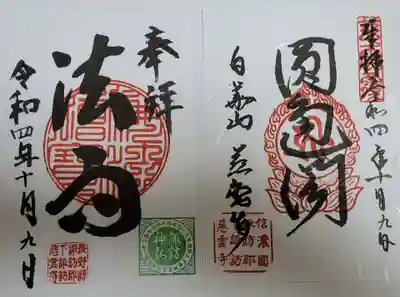 奉拝
法雨
令和四年十月九日
長野縣
諏訪郡
下諏訪
慈雲寺
奉拝
令和四年十月九日
圓通閣
白華山
慈雲寺
信濃國
諏訪郡
下諏訪
慈雲寺